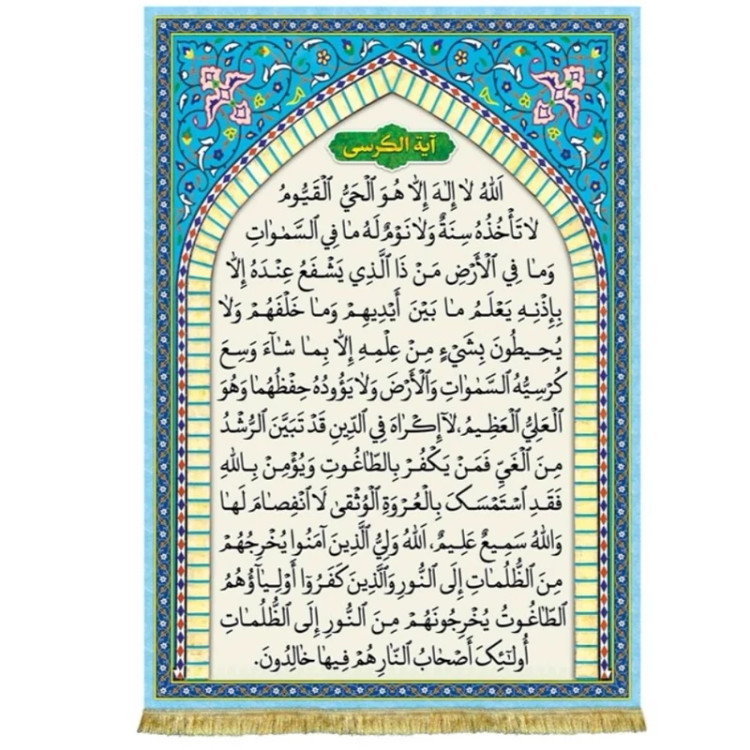 آية الكرسى
اَللهُ لا إِلهَ إِلّا هُوَ الْحَيُّ الْقَيُّومُ
لا تَأْخُذُهُ سِنَةٌ وَلا نَوْمٌ لَهُ ما فِي السَّمٰواتِ
وَما فِي الْأَرْضِ مَنْ ذَا الَّذِي يَشْفَعُ عِنْدَهُ إِلّا
بِإِذْنِهِ يَعْلَمُ ما بَيْنَ أَيْدِيهِمْ وَما خَلْفَهُمْ وَلا
يُحِيطُونَ بِشَيْءٍ مِنْ عِلْمِهِ إِلّا بِما شاءَ وَسِعَ
كُرْسِيُّهُ السَّمٰواتِ وَالْأَرْضَ وَلا يَؤُودُهُ حِفْظُهُما وَهُوَ
الْعَلِيُّ الْعَظِيمُ، لا إِكْراهَ فِي الدِّينِ قَدْ تَبَيَّنَ الرُّشْدُ
مِنَ الْغَيِّ فَمَنْ يَكْفُرْ بِالطّاغُوتِ وَيُؤْمِنْ بِاللهِ
فَقَدِ اسْتَمْسَکَ بِالْعُرْوَةِ الْوُثْقىٰ لَا انْفِصامَ لَها
وَاللهُ سَمِيعٌ عَلِيمٌ، اَللهُ وَلِيُّ الَّذِينَ آمَنُوا يُخْرِجُهُمْ
مِنَ الظُّلُماتِ إِلَى النُّورِ وَالَّذِينَ كَفَرُوا أَوْلِياؤُهُمُ
الطّاغُوتُ يُخْرِجُونَهُمْ مِنَ النُّورِ إِلَى الظُّلُماتِ
أُولٰئِکَ أَصْحابُ النّارِ هُمْ فِيها خالِدُونَ.